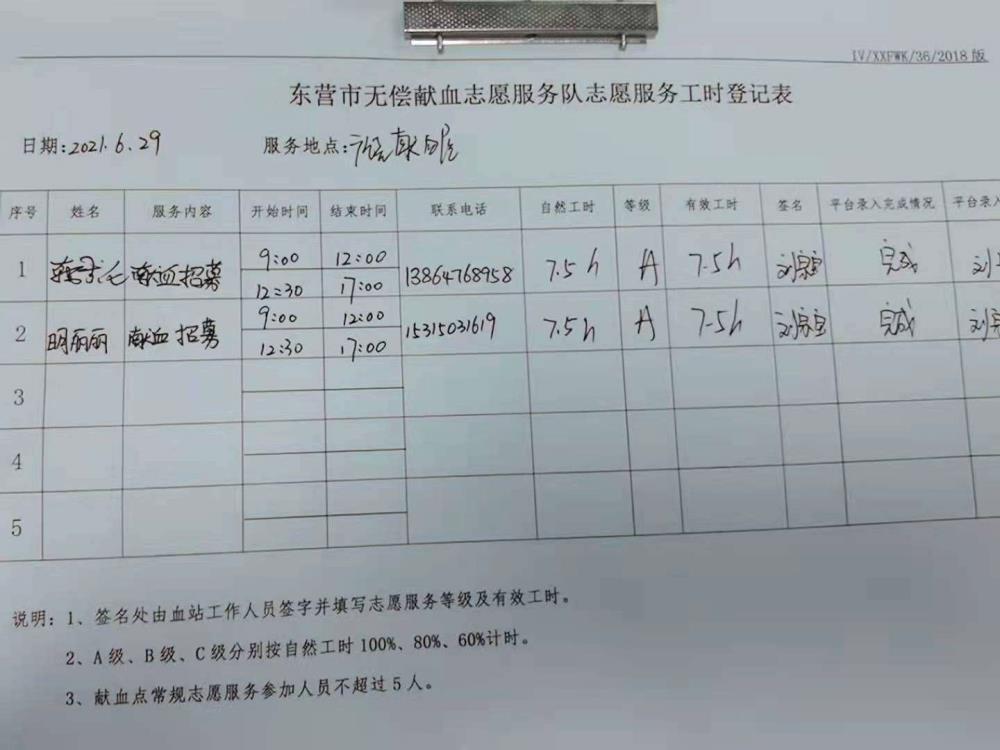 IV/XXFWK/36/2018版
东营市无偿献血志愿服务队志愿服务工时登记表
日期:2021.6.29 服务地点:献血屋
序号 姓名 服务内容 开始时间 结束时间 联系电话 自然工时 等级 有效工时 签名 平台录入完成情况 平台录入
1 献血招募 9:00 12:00 13864768958 7.5h A 7.5h 完成
12:30 17:00
2 明丽丽 献血招募 9:00 12:00 15315031619 7.5h A 7.5h 完成
12:30 17:00
3
4
5
说明:1、签名处由血站工作人员签字并填写志愿服务等级及有效工时。
2、A级、B级、C级分别按自然工时100%、80%、60%计时。
3、献血点常规志愿服务参加人员不超过5人。